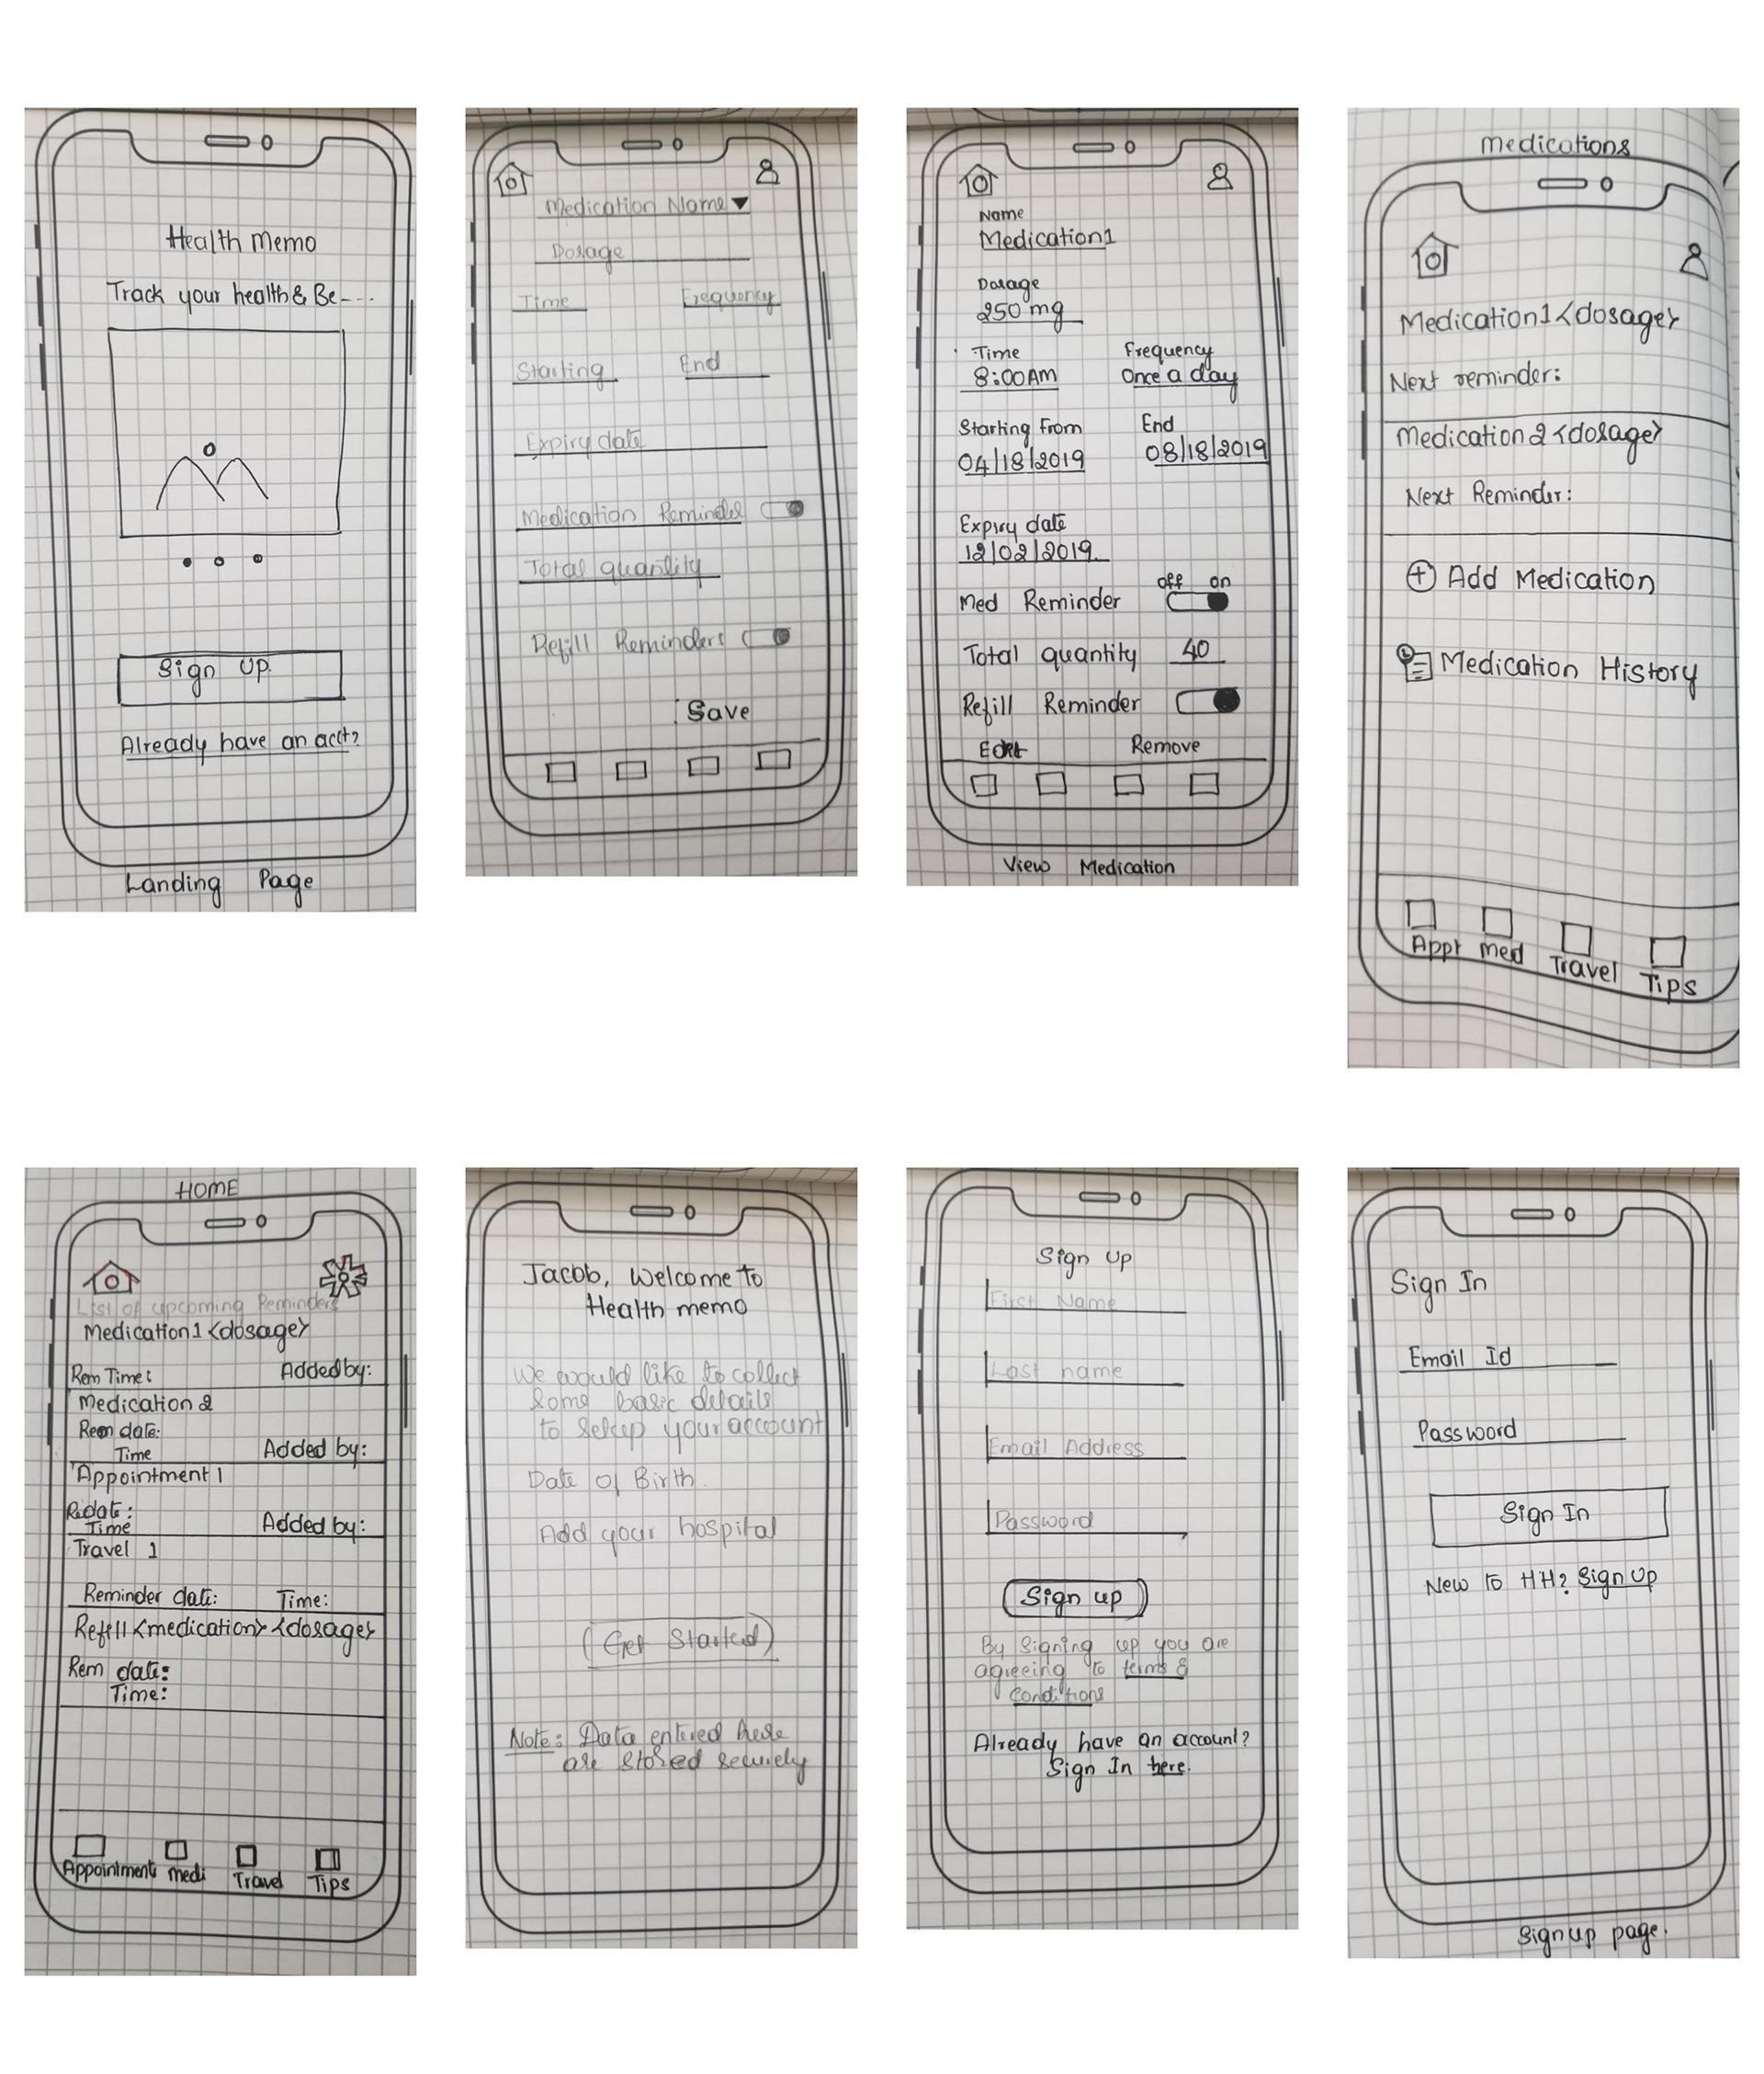 Health Memo
Track your health & Be----
Sign Up
Already have an acct?
Landing Page
Medication Name
Dosage
Time Frequency
Starting End
Expiry date
Medication Reminder
Total quantity
Refill Reminders
Save
Name
Medication1
Dosage
250 mg
Time Frequency
8:00AM Once a day
Starting From End
04/18/2019 08/18/2019
Expiry date
12/02/2019
off on
Med Reminder
Total quantity 40
Refill Reminder
Edit Remove
View Medication
Medications
Medication1 <dosage>
Next reminder:
Medication2 <dosage>
Next Reminder:
Add Medication
Medication History
Appt Med Travel Tips
HOME
List of upcoming Reminders
Medication1 <dosage>
Rem Time: Added by:
Medication 2
Rem date:
Time Added by:
Appointment 1
Time Added by:
Travel 1
Reminder date: Time:
Refill <medication> <dosage>
Rem date:
Time:
Appointment medi Travel Tips
Jacob, Welcome to
Health memo
We would like to collect
some basic details
to setup your account
Date of Birth.
Add your hospital
(Get Started)
Note: Data entered here
are stored securely
Sign Up
First Name
Last name
Email Address
Password
Sign up
By signing up you are
agreeing to terms &
Conditions
Already have an account?
Sign In here.
Sign In
Email Id
Password
Sign In
New to HH? Sign Up
Signup page.